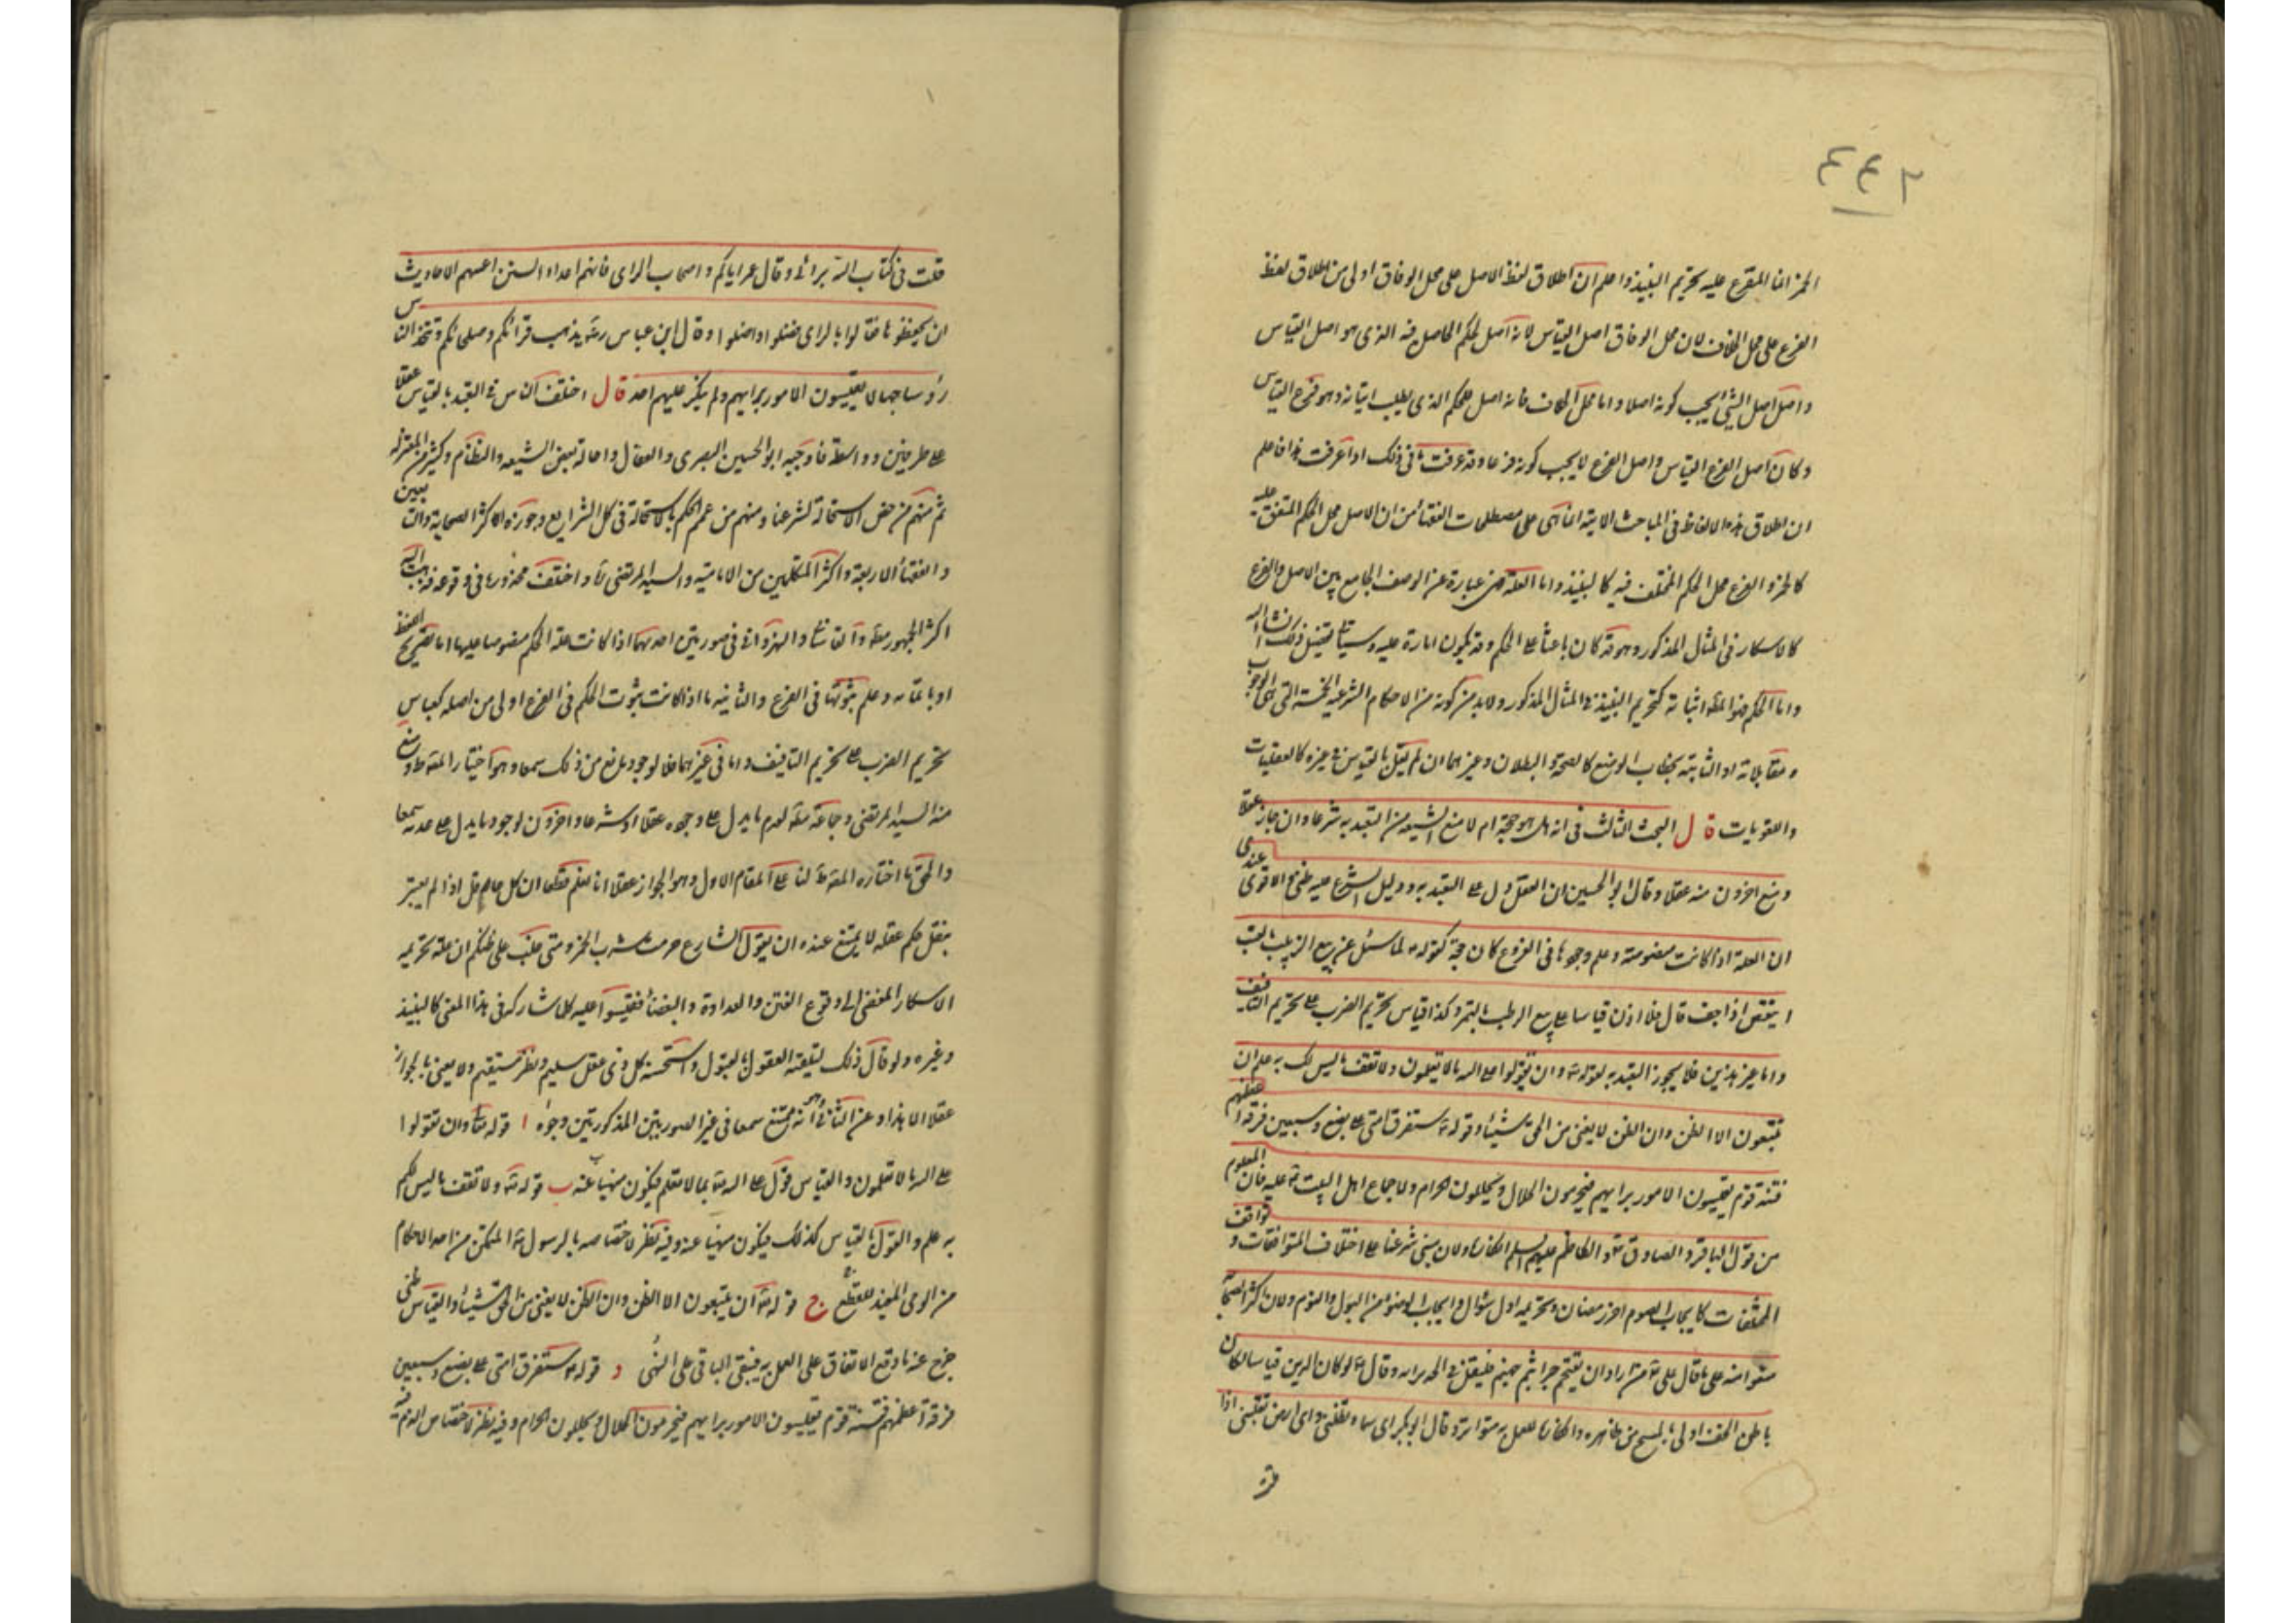 ٤٤٢
الخمر انما المقرع عليه تحريم النبيذ واعلم ان اطلاق لفظ الاصل على محل الوفاق اولى من اطلاق لفظ
الفرع على محل الخلاف لان محل الوفاق اصل القياس لانه اصل لحكم الحاصل فيه الذى هو اصل القياس
واصل اصل الشئ يجب كونه اصلا واما محل الخلاف فانه اصل للحكم الذى يطلب اثباته وهو فرع القياس
وكان اصل الفرع القياس واصل الفرع لا يجب كونه فرعا وقد عرفت ما فى ذلك اذا عرفت هذا فاعلم
ان اطلاق هذه الالفاظ فى المباحث الاتية انما هى على مصطلحات الفقهاء من ان الاصل محل الحكم المتفق عليه
كالخمر والفرع محل الحكم المختلف فيه كالنبيذ واما العلة فهى عبارة عن الوصف الجامع بين الاصل والفرع
كالاسكار فى المثال المذكور وهو قد كان باعثا على الحكم وقد يكون امارة عليه وسياتى تفصيل ذلك انشا الله
واما الحكم فهو المط اثباته كتحريم النبيذ فى المثال المذكور ولا بد من كونه من الاحكام الشرعية الخمسة التى هى الوجوب
ومقابلاته او الثابتة بخطاب الوضع كالصحة والبطلان وغيرهما ان لم يقل بالقياس فى غيره كالعقليات
واللغويات قال البحث الثالث فى انه هل هو حجة ام لا منع الشيعة من التعبد به شرعا وان جاز عقلا
ومنع اخرون منه عقلا وقال ابو الحسين ان العقل دل على التعبد به ودليل الشرع عليه ظنى والاقوى عندى
ان العلة اذا كانت منصوصة وعلم وجودها فى الفروع كان حجة كقوله لما سئل عن بيع الرطب بالتمر
اينقص اذا جف قال فلا اذن قياسا على بيع الرطب بالتمر وكذا قياس تحريم الضرب على تحريم التافيف
واما غير هذين فلا يجوز التعبد به لقوله تعه وان تقولوا على الله ما لا تعلمون ولا تقف ما ليس لك به علم ان
يتبعون الا الظن وان الظن لا يغنى من الحق شيئا وقوله ستفترق امتى على بضع وسبعين فرقة اعظمهم
فتنة قوم يقيسون الامور برايهم فيحرمون الحلال ويحللون الحرام ولاجماع اهل البيت عليه فان المعلوم
من قول الباقر والصادق والكاظم عليهم السلم انكاره ولان مبنى شرعنا على اختلاف المتوافقات وتوافق
المختلفات كايجاب الصوم اخر رمضان وتحريمه اول شوال وايجاب الوضوء من البول والنوم ولان اكثر الصحابة
منعوا منه على ما قال على من اراد ان يتقحم جراثيم جهنم فليقل فى الجد برايه وقال لو كان الدين قياسا لكان
باطن الخف اولى بالمسح من ظاهره وانكاره للعمل به متواتر وقال ابو بكر اى سماء تظلنى واى ارض تقلنى اذا
قلت فى كتاب الله برائى وقال عمر اياكم واصحاب الراى فانهم اعداء السنن اعيتهم الاحاديث
ان يحفظوها فقالوا بالراى فضلوا واضلوا وقال ابن عباس يذهب قراؤكم وصلحائكم وتتخذ الناس
رؤسا جهالا يقيسون الامور برايهم ولم ينكر عليهم احد قال اختلف الناس فى التعبد بالقياس عقلا
على طرفين وواسطة فاوجبه ابو الحسين البصرى والقفال واحاله بعض الشيعة والنظام وكثير من المعتزلة
ثم منهم من خص الاستحالة لشرعنا ومنهم من عمم الحكم بالاستحالة فى كل الشرايع وجوزه اكثر الصحابة والتابعين
والفقهاء الاربعة واكثر المتكلمين من الامامية والسيد المرتضى واختلف مجوزوها فى وقوعه فذهب اليه
اكثر الجمهور مط والقاشانى والنهروانى فى صورتين احدهما اذا كانت علة الحكم منصوصا عليها اما بصريح اللفظ
او بايمائه وعلم ثبوتها فى الفرع والثانية ما اذا كانت ثبوت الحكم فى الفرع اولى من اصله كقياس
تحريم الضرب على تحريم التافيف واما فى غيرهما فلا لوجود مانع من ذلك سمعا وهو اختيار المصه ومنع
منه السيد المرتضى وجماعة مط لعدم ما يدل على وجوده عقلا او شرعا واخرون لوجود ما يدل على عدمه سمعا
والحق ما اختاره المصه لنا على المقام الاول وهو الجواز عقلا انا نعلم قطعا ان كل عاقل اذا لم يعتبر
بنقل حكم عقله لا يمتنع عنده ان يقول الشارع حرمت شرب الخمر ومتى غلب على ظنكم ان علة تحريمه
الاسكار المفضى الى وقوع الفتن والعداوة والبغضاء فقيسوا عليه كلما شاركه فى هذا المعنى كالنبيذ
وغيره ولو قال ذلك لتلقته العقول بالقبول واستحسنه كل ذى عقل سليم ونظر مستقيم ولا يعنى بالجواز
عقلا الا هذا وعن الثانى انه ممتنع سمعا فى غير الصورتين المذكورتين وجوه ا قوله تعا وان تقولوا
على الله ما لا تعلمون والقياس قول على الله بما لا تعلم فيكون منهيا عنه ب قوله تعه ولا تقف ما ليس لكم
به علم والقول بالقياس كذلك فيكون منهيا عنه وفيه نظر لاختصاصه بالرسول المتمكن من اخذ الاحكام
من الوحى المفيد للقطع ج قوله تعه ان يتبعون الا الظن وان الظن لا يغنى من الحق شيئا والقياس ظنى
خرج عنه ما وقع الاتفاق على العمل به فيبقى الباقى على النهى د قوله ستفترق امتى على بضع وسبعين
فرقة اعظمهم فتنة قوم يقيسون الامور برايهم فيحرمون الحلال ويحللون الحرام وفيه نظر لاختصاص الذم فيه